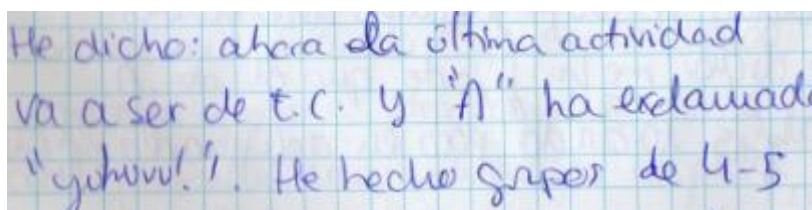 He dicho: ahora la última actividad
va a ser de t.c. y "A" ha exclamado
"yuhuuu!". He hecho grupos de 4-5